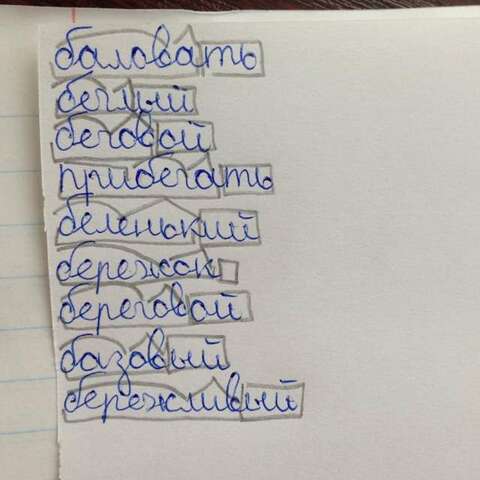 баловать
беглый
беговой
прибегать
беленький
бережок
береговой
базовый
бережливый